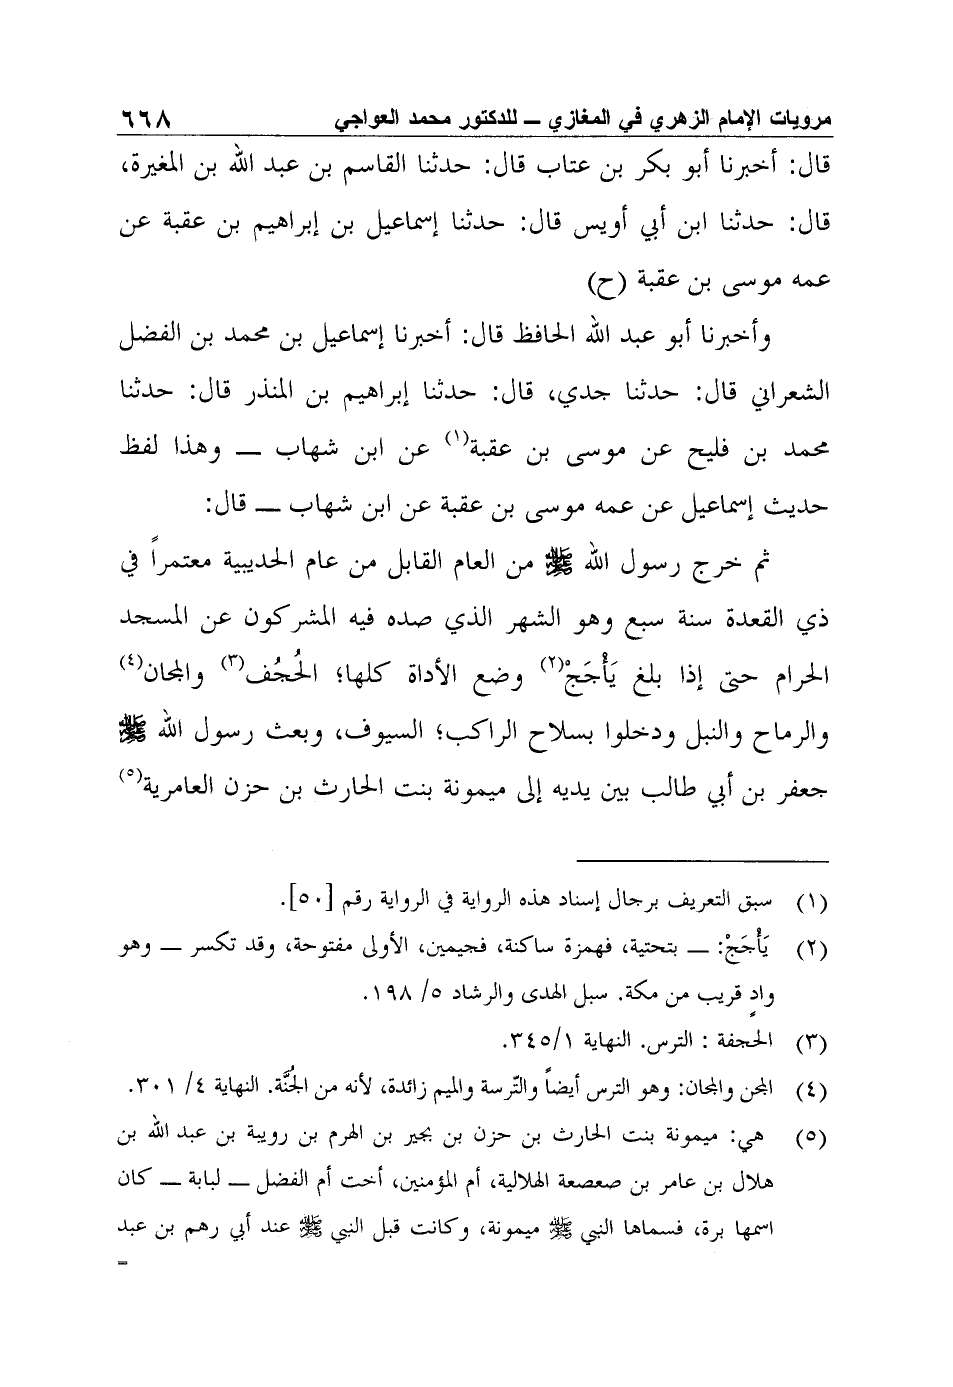 مرويات الإمام الزهري في المغازي ــ للدكتور محمد العواجي ٦٦٨
قال: أخبرنا أبو بكر بن عتاب قال: حدثنا القاسم بن عبد الله بن المغيرة،
قال: حدثنا ابن أبي أويس قال: حدثنا إسماعيل بن إبراهيم بن عقبة عن
عمه موسى بن عقبة (ح)
وأخبرنا أبو عبد الله الحافظ قال: أخبرنا إسماعيل بن محمد بن الفضل
الشعراني قال: حدثنا جدي، قال: حدثنا إبراهيم بن المنذر قال: حدثنا
محمد بن فليح عن موسى بن عقبة(١) عن ابن شهاب ــ وهذا لفظ
حديث إسماعيل عن عمه موسى بن عقبة عن ابن شهاب ــ قال:
ثم خرج رسول الله ﷺ من العام القابل من عام الحديبية معتمراً في
ذي القعدة سنة سبع وهو الشهر الذي صده فيه المشركون عن المسجد
الحرام حتى إذا بلغ يَأْجَجْ(٢) وضع الأداة كلها؛ الحُجُف(٣) والمجان(٤)
والرماح والنبل ودخلوا بسلاح الراكب؛ السيوف، وبعث رسول الله ﷺ
جعفر بن أبي طالب بين يديه إلى ميمونة بنت الحارث بن حزن العامرية(٥)
(١) سبق التعريف برجال إسناد هذه الرواية في الرواية رقم [٥٠].
(٢) يَأْجَجْ: ــ بتحتية، فهمزة ساكنة، فجيمين، الأولى مفتوحة، وقد تكسر ــ وهو
وادٍ قريب من مكة. سبل الهدى والرشاد ٥/ ١٩٨.
(٣) الحجفة : الترس. النهاية ٣٤٥/١.
(٤) المجن والمجان: وهو الترس أيضاً والتّرسة والميم زائدة، لأنه من الجُنَّة. النهاية ٤/ ٣٠١.
(٥) هي: ميمونة بنت الحارث بن حزن بن بجير بن الهرم بن رويبة بن عبد الله بن
هلال بن عامر بن صعصعة الهلالية، أم المؤمنين، أخت أم الفضل ــ لبابة ــ كان
اسمها برة، فسماها النبي ﷺ ميمونة، وكانت قبل النبي ﷺ عند أبي رهم بن عبد
=